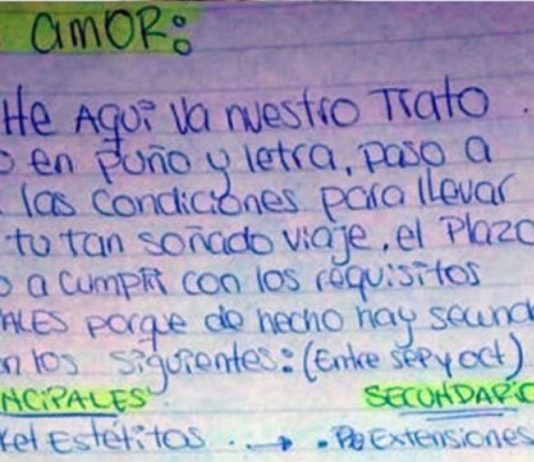 amor:
He Aquí va nuestro Trato.
en puño y letra, paso a
las condiciones para llevar
tu tan soñado viaje, el Plazo
a cumplir con los requisitos
ALES porque de hecho hay secund
n los siguientes: (Entre sep y oct)
NCIPALES SECUNDARIO
ket Estétitos . → . Extensiones